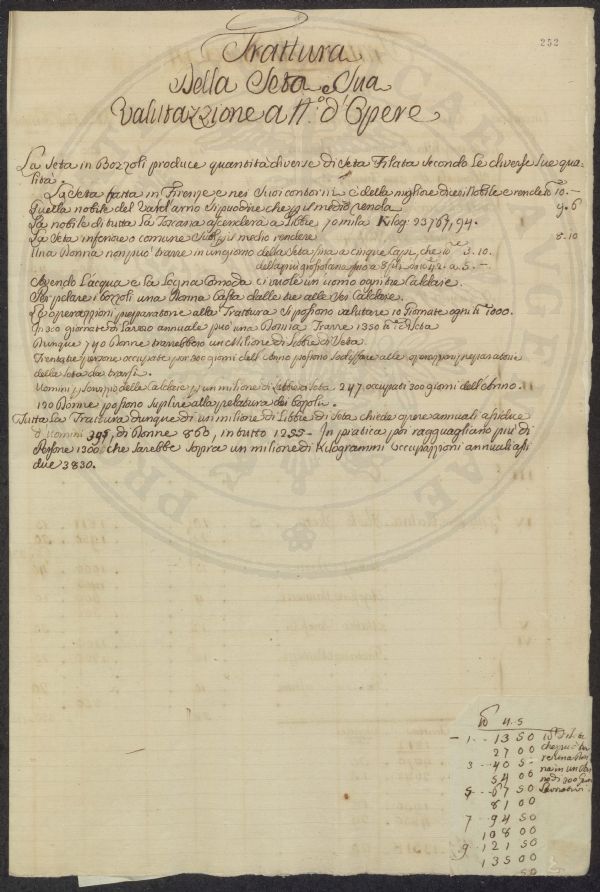 252
Trattura
Della Seta e Sua
Valutazzione a N.º d'Opere
La Seta in Bozzoli produce quantità diverse di Seta Filata secondo le diverse sue qua-
lità
La Seta fatta in Firenze e nei suoi contorni è della migliore Nobile e rende 10.—
Quella nobile del Vald'arno si può dire che renda 9.6
La nobile di tutta la Toscana ascenderà a Libbre Kilog. 23767,94.
La Seta inferiore o comune medio rendere 8.10
Una Donna non può trarre in un giorno della Seta fina a cinque Capi, che 3.10.
della più grossolana fino a a 5.—
Avendo l'acqua e la Legna Comoda ci vuole un uomo ogni tre Caldaie.
Per pelare i bozzoli una Donna basta dalle tre alle sei Caldaie.
Le operazzioni preparatorie alla Trattura si possono valutare 10 Giornate ogni 1000.
In 300 giornate di Lavoro annuale può una Donna Trarre 1350 di Seta
Dunque 740 Donne trarrebbero un Milione di Libbre di Seta.
Trentatre persone occupate per 300 giorni dell'Anno possono sodisfare alle operazzioni preparatorie
della Seta da trarsi.
Uomini servizio delle Caldaie un milione di Libbre di Seta 247 occupati 300 giorni dell'Anno.
120 Donne possono supplire alla pelatura dei Bozoli.
Tutta la Trattura dunque di un milione di Libbre di Seta chiede opere annuali
d'Uomini 395, di Donne 860, in tutto 1255. In pratica poi ragguagliano più di
Persone 1300, che sarebbe sopra un milione di Kilogrammi occupazzioni annuali
due 3830.
N. S
1 .. 13 50
27 00
3 .. 40 5 -
54 00
5 .. 67 50
81 00
7 .. 94 50
108 00
9 .. 121 50
135 00
50
di Seta
che può tra
re una don
na in un an
no di 300 gior